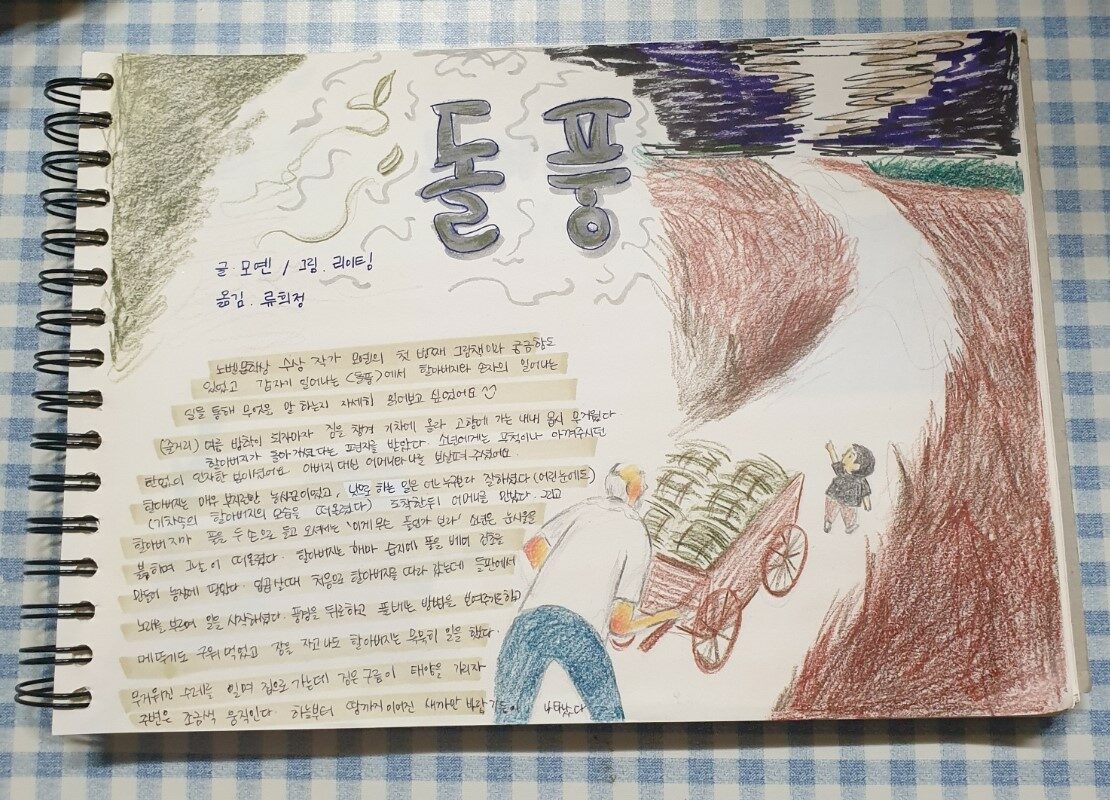 돌풍
글. 모옌 / 그림. 리이팅
옮김. 류희정
노벨문학상 수상 작가 모옌의 첫 번째 그림책이라 궁금함도
있었고 갑자기 일어나는 <돌풍>에서 할아버지와 손자의 일어나는
일을 통해 무엇을 말하는지 자세히 읽어보고 싶었어요
(줄거리) 여름 방학이 되자마자 짐을 챙겨 기차에 올라 고향에 가는 내내 몹시 무거웠다.
할아버지가 돌아가셨다는 편지를 받았다. 소년에게는 표정이나 아껴주시던
인자한 분이셨어요. 아버지 대신 어머니와 나를 보살펴 주셨어요.
할아버지는 매우 부지런한 농사꾼이었고, 낫으로 하는 일은 어느 누구보다 잘하셨다 (어린 눈에도)
(기차속의 할아버지의 모습을 떠올렸다) 도착한 뒤 어머니를 만났다. 그리고
할아버지가 풀을 두 손으로 들고 오셔서는 '이게 무슨 풀인가 보라' 소년은
그날이 떠올랐다. 할아버지는 해마다 습지에 풀을 베어
일곱살때 처음으로 할아버지를 따라 갔는데 들판에서
노래를 부르며 일을 시작하셨다. 풀 베는 방법을 보여주기도 하고
메뚜기도 구워 먹었고 잠을 자고 나도 할아버지는 묵묵히 일을 했다.
무거워진 수레를 밀며 집으로 가는데 검은 구름이 태양을 가리자
주변은 조금씩 움직인다. 하늘부터 땅까지 이어진 새까만 바람기둥이 나타났다